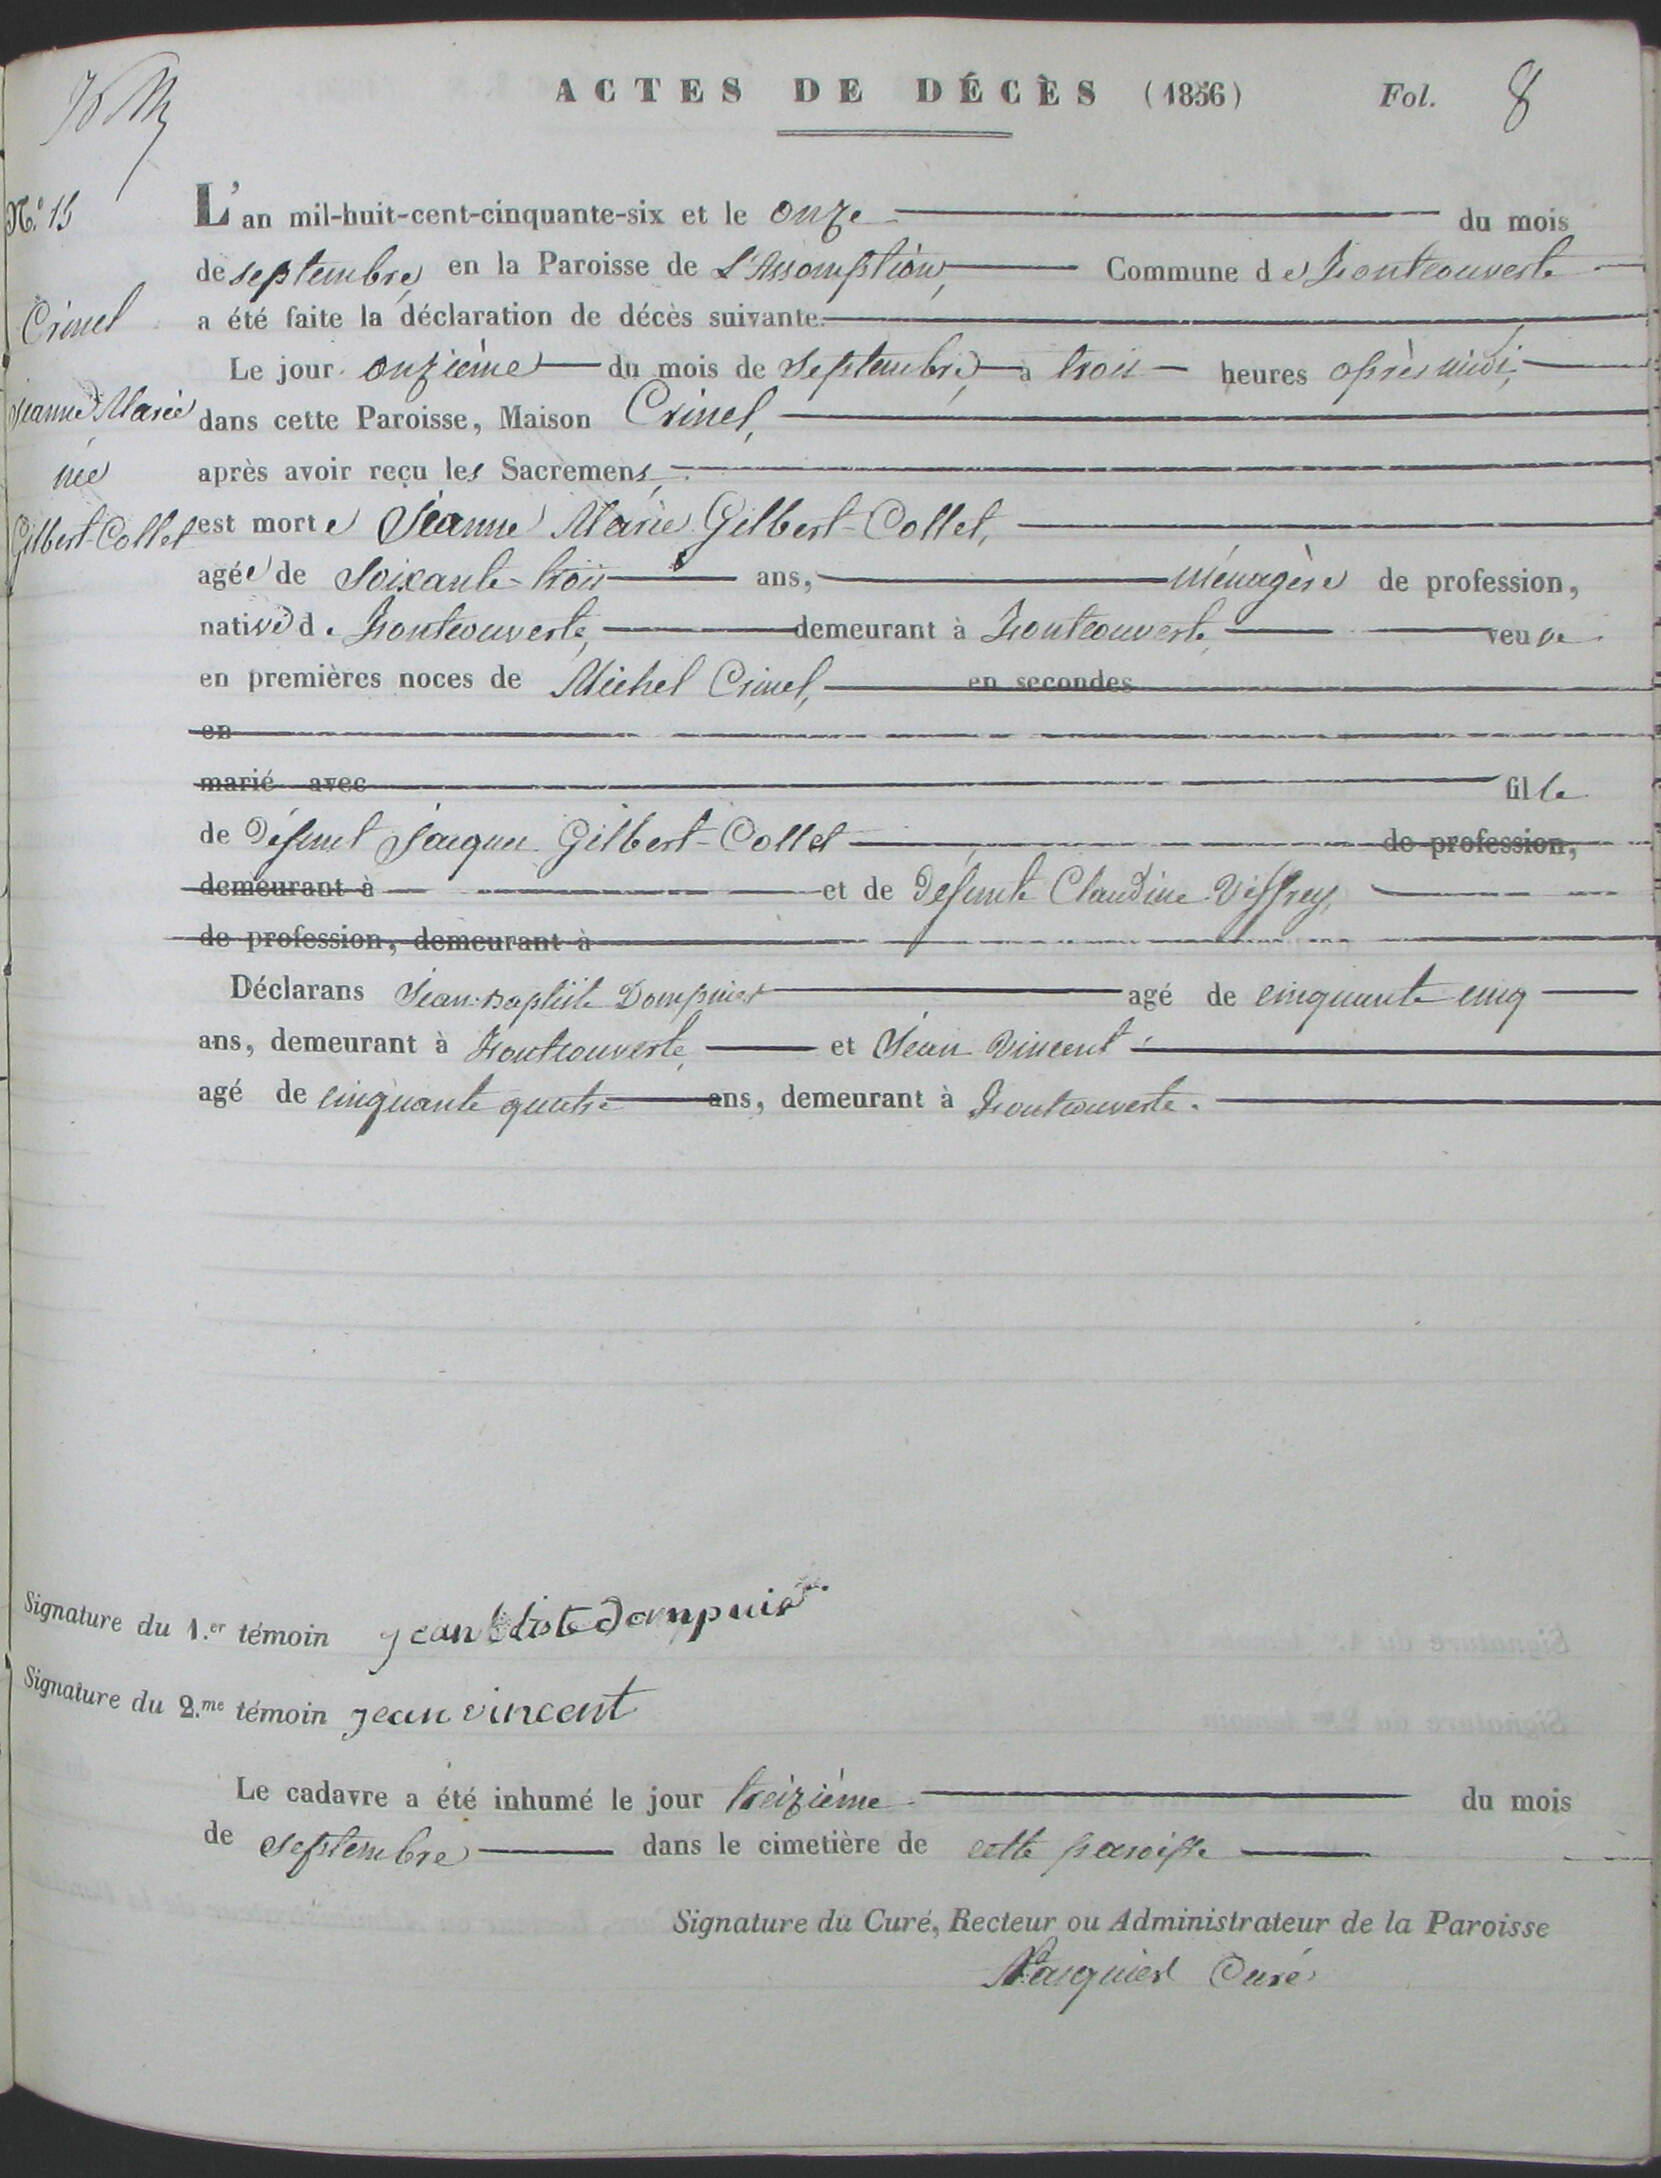 ACTES DE DÉCÈS (1856) Fol. 8
N.º 15
Crinel
Jeanne Marie
née
Gilbert-Collet
L'an mil-huit-cent-cinquante-six et le onze du mois
de septembre, en la Paroisse de L'Assomption, Commune de Frontcouverte
a été faite la déclaration de décès suivante.
Le jour onzième du mois de septembre, à trois heures après midi,
dans cette Paroisse, Maison Crinel,
après avoir reçu les Sacremens,
est morte Jeanne Marie Gilbert-Collet,
agée de soixante-trois ans, ménagère de profession,
native de Frontcouverte, demeurant à Frontcouverte, veuve
en premières noces de Michel Crinel, en secondes
en
marié avec fille
de défunt Jacques Gilbert-Collet de profession,
demeurant à et de défunte Claudine Viffrey,
de profession, demeurant à
Déclarans Jean-Baptiste Dompnier agé de cinquante cinq
ans, demeurant à Frontcouverte, et Jean Vincent
agé de cinquante quatre ans, demeurant à Frontcouverte.
Signature du 1.er témoin jean btiste dompnier
Signature du 2.me témoin jean vincent
Le cadavre a été inhumé le jour treizième du mois
de septembre dans le cimetière de cette paroisse
Signature du Curé, Recteur ou Administrateur de la Paroisse
Pasquier Curé